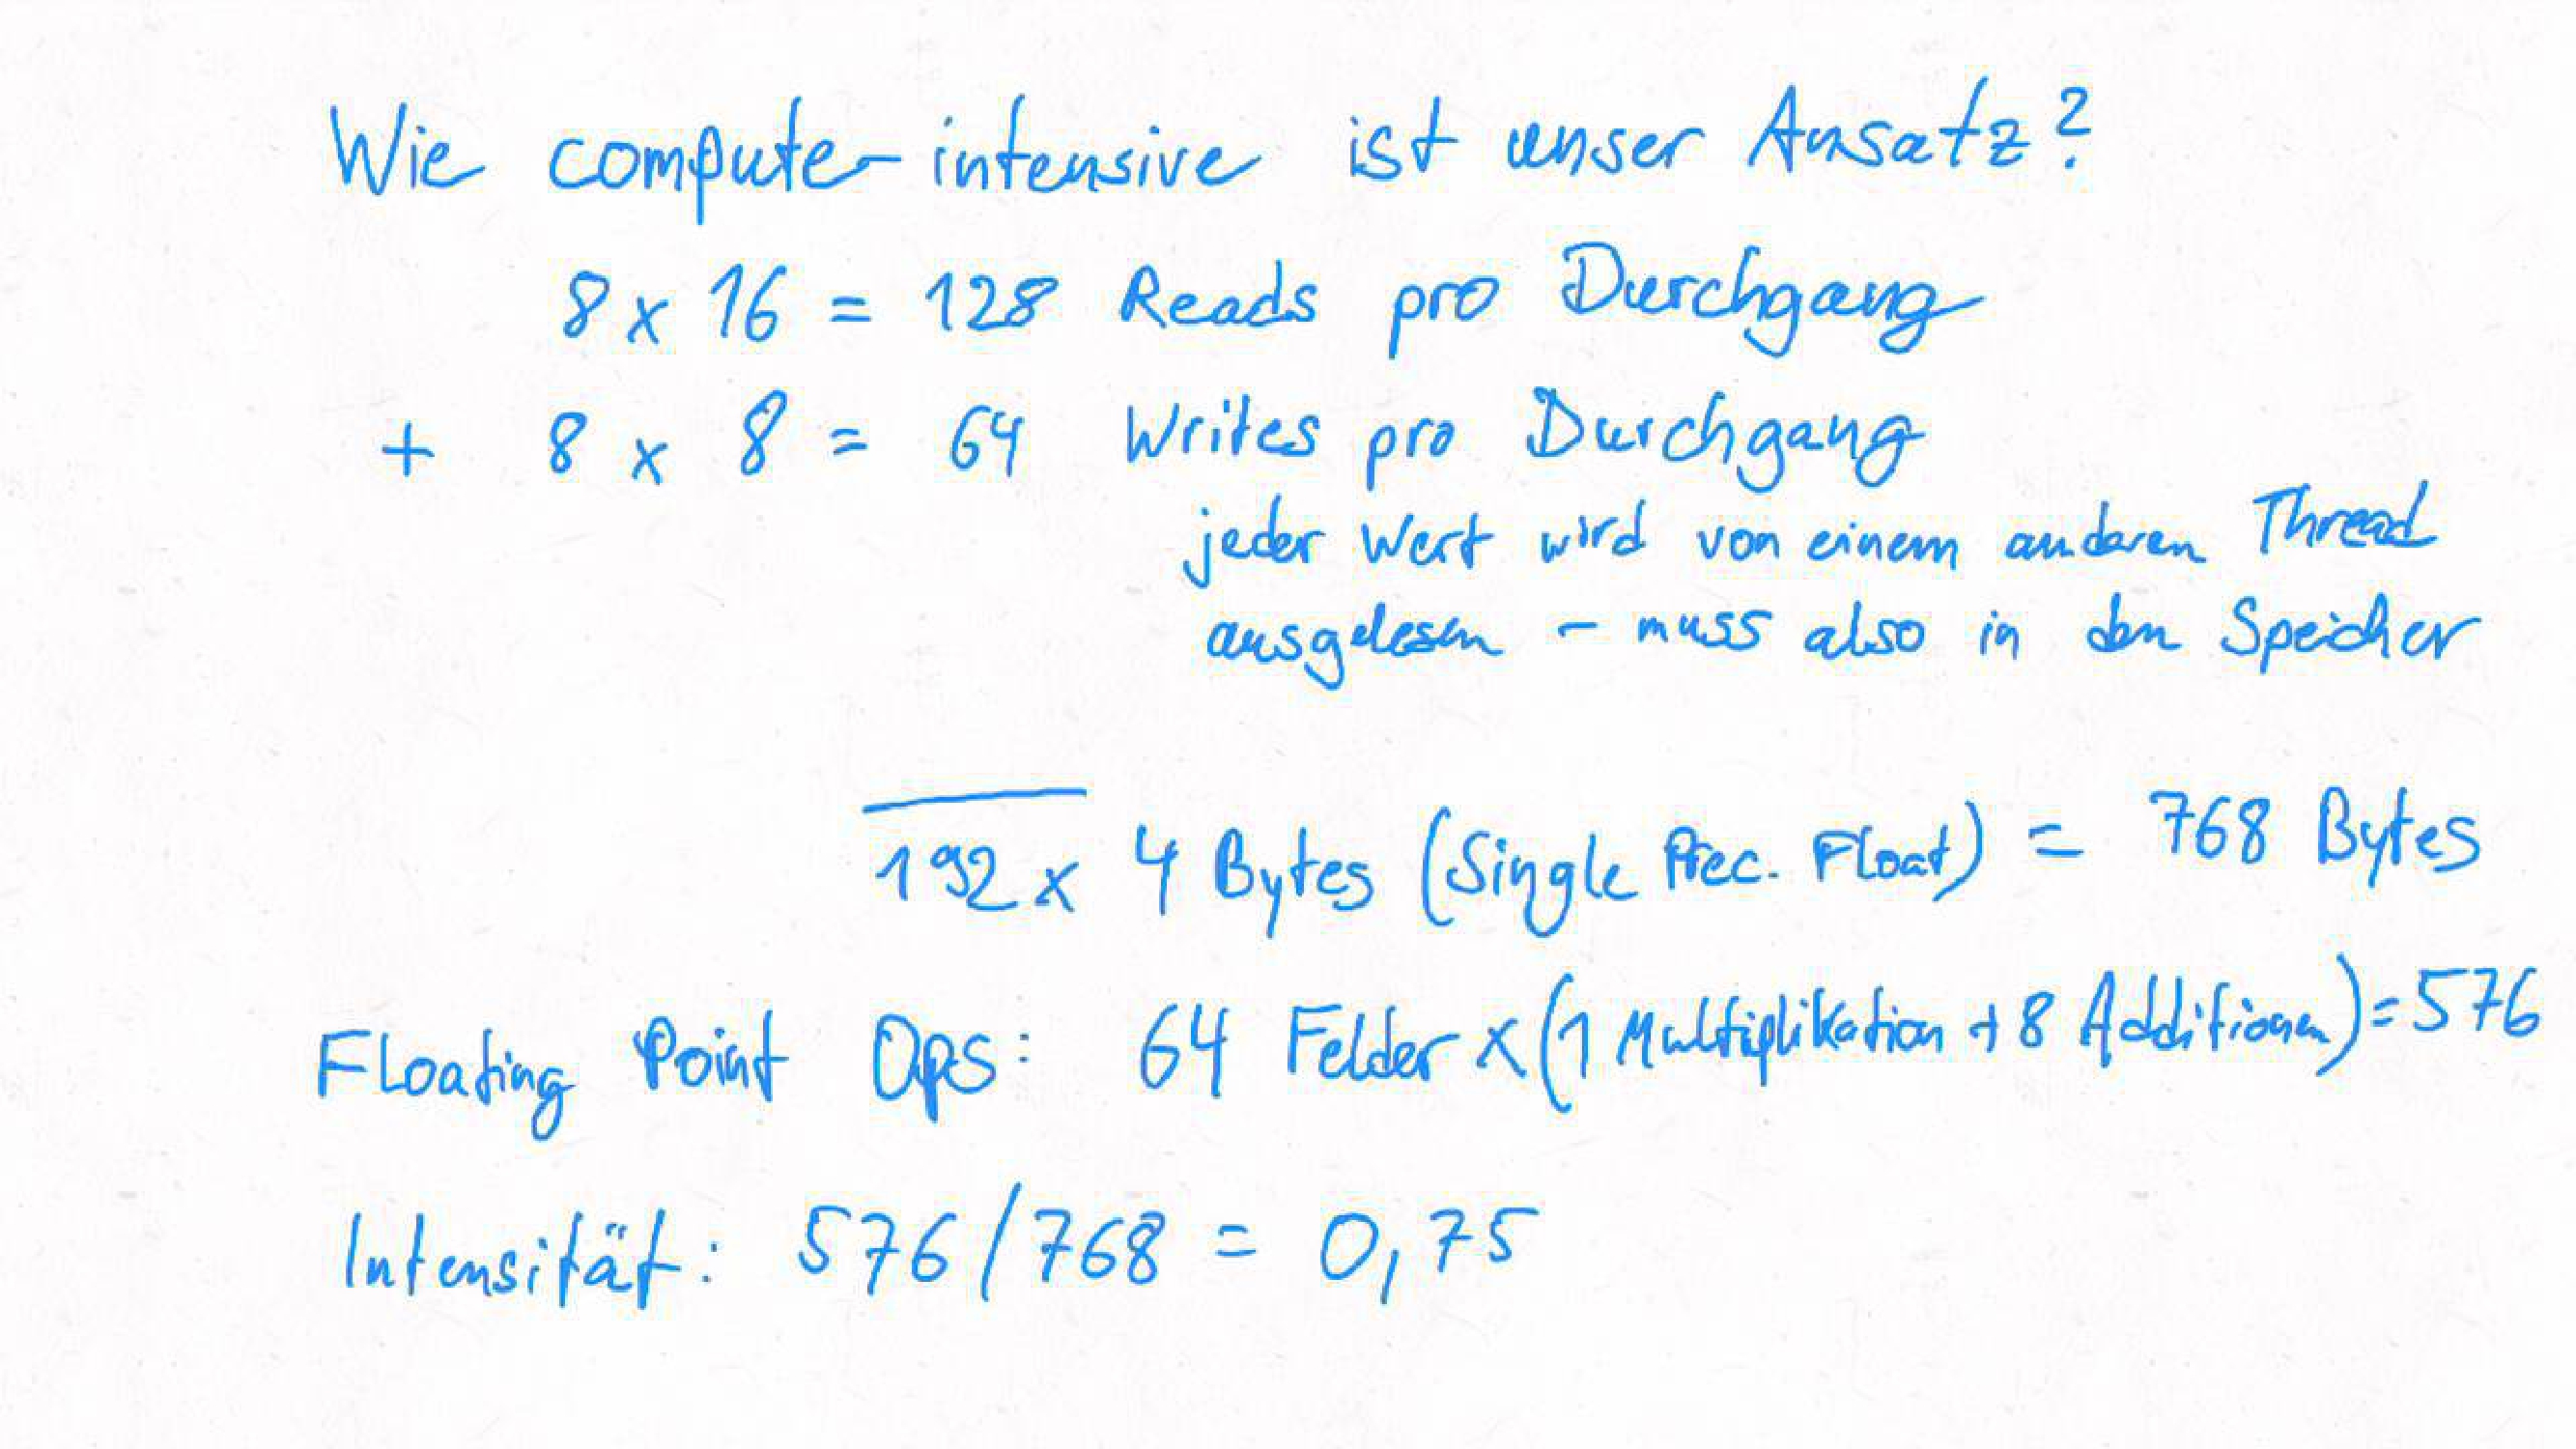 Wie compute-intensive ist unser Ansatz?
8 x 16 = 128 Reads pro Durchgang
+ 8 x 8 = 64 Writes pro Durchgang
jeder Wert wird von einem anderen Thread
ausgelesen – muss also in den Speicher
192 x 4 Bytes (Single Prec. Float) = 768 Bytes
Floating Point Ops: 64 Felder x (1 Multiplikation + 8 Additionen) = 576
Intensität: 576 / 768 = 0,75